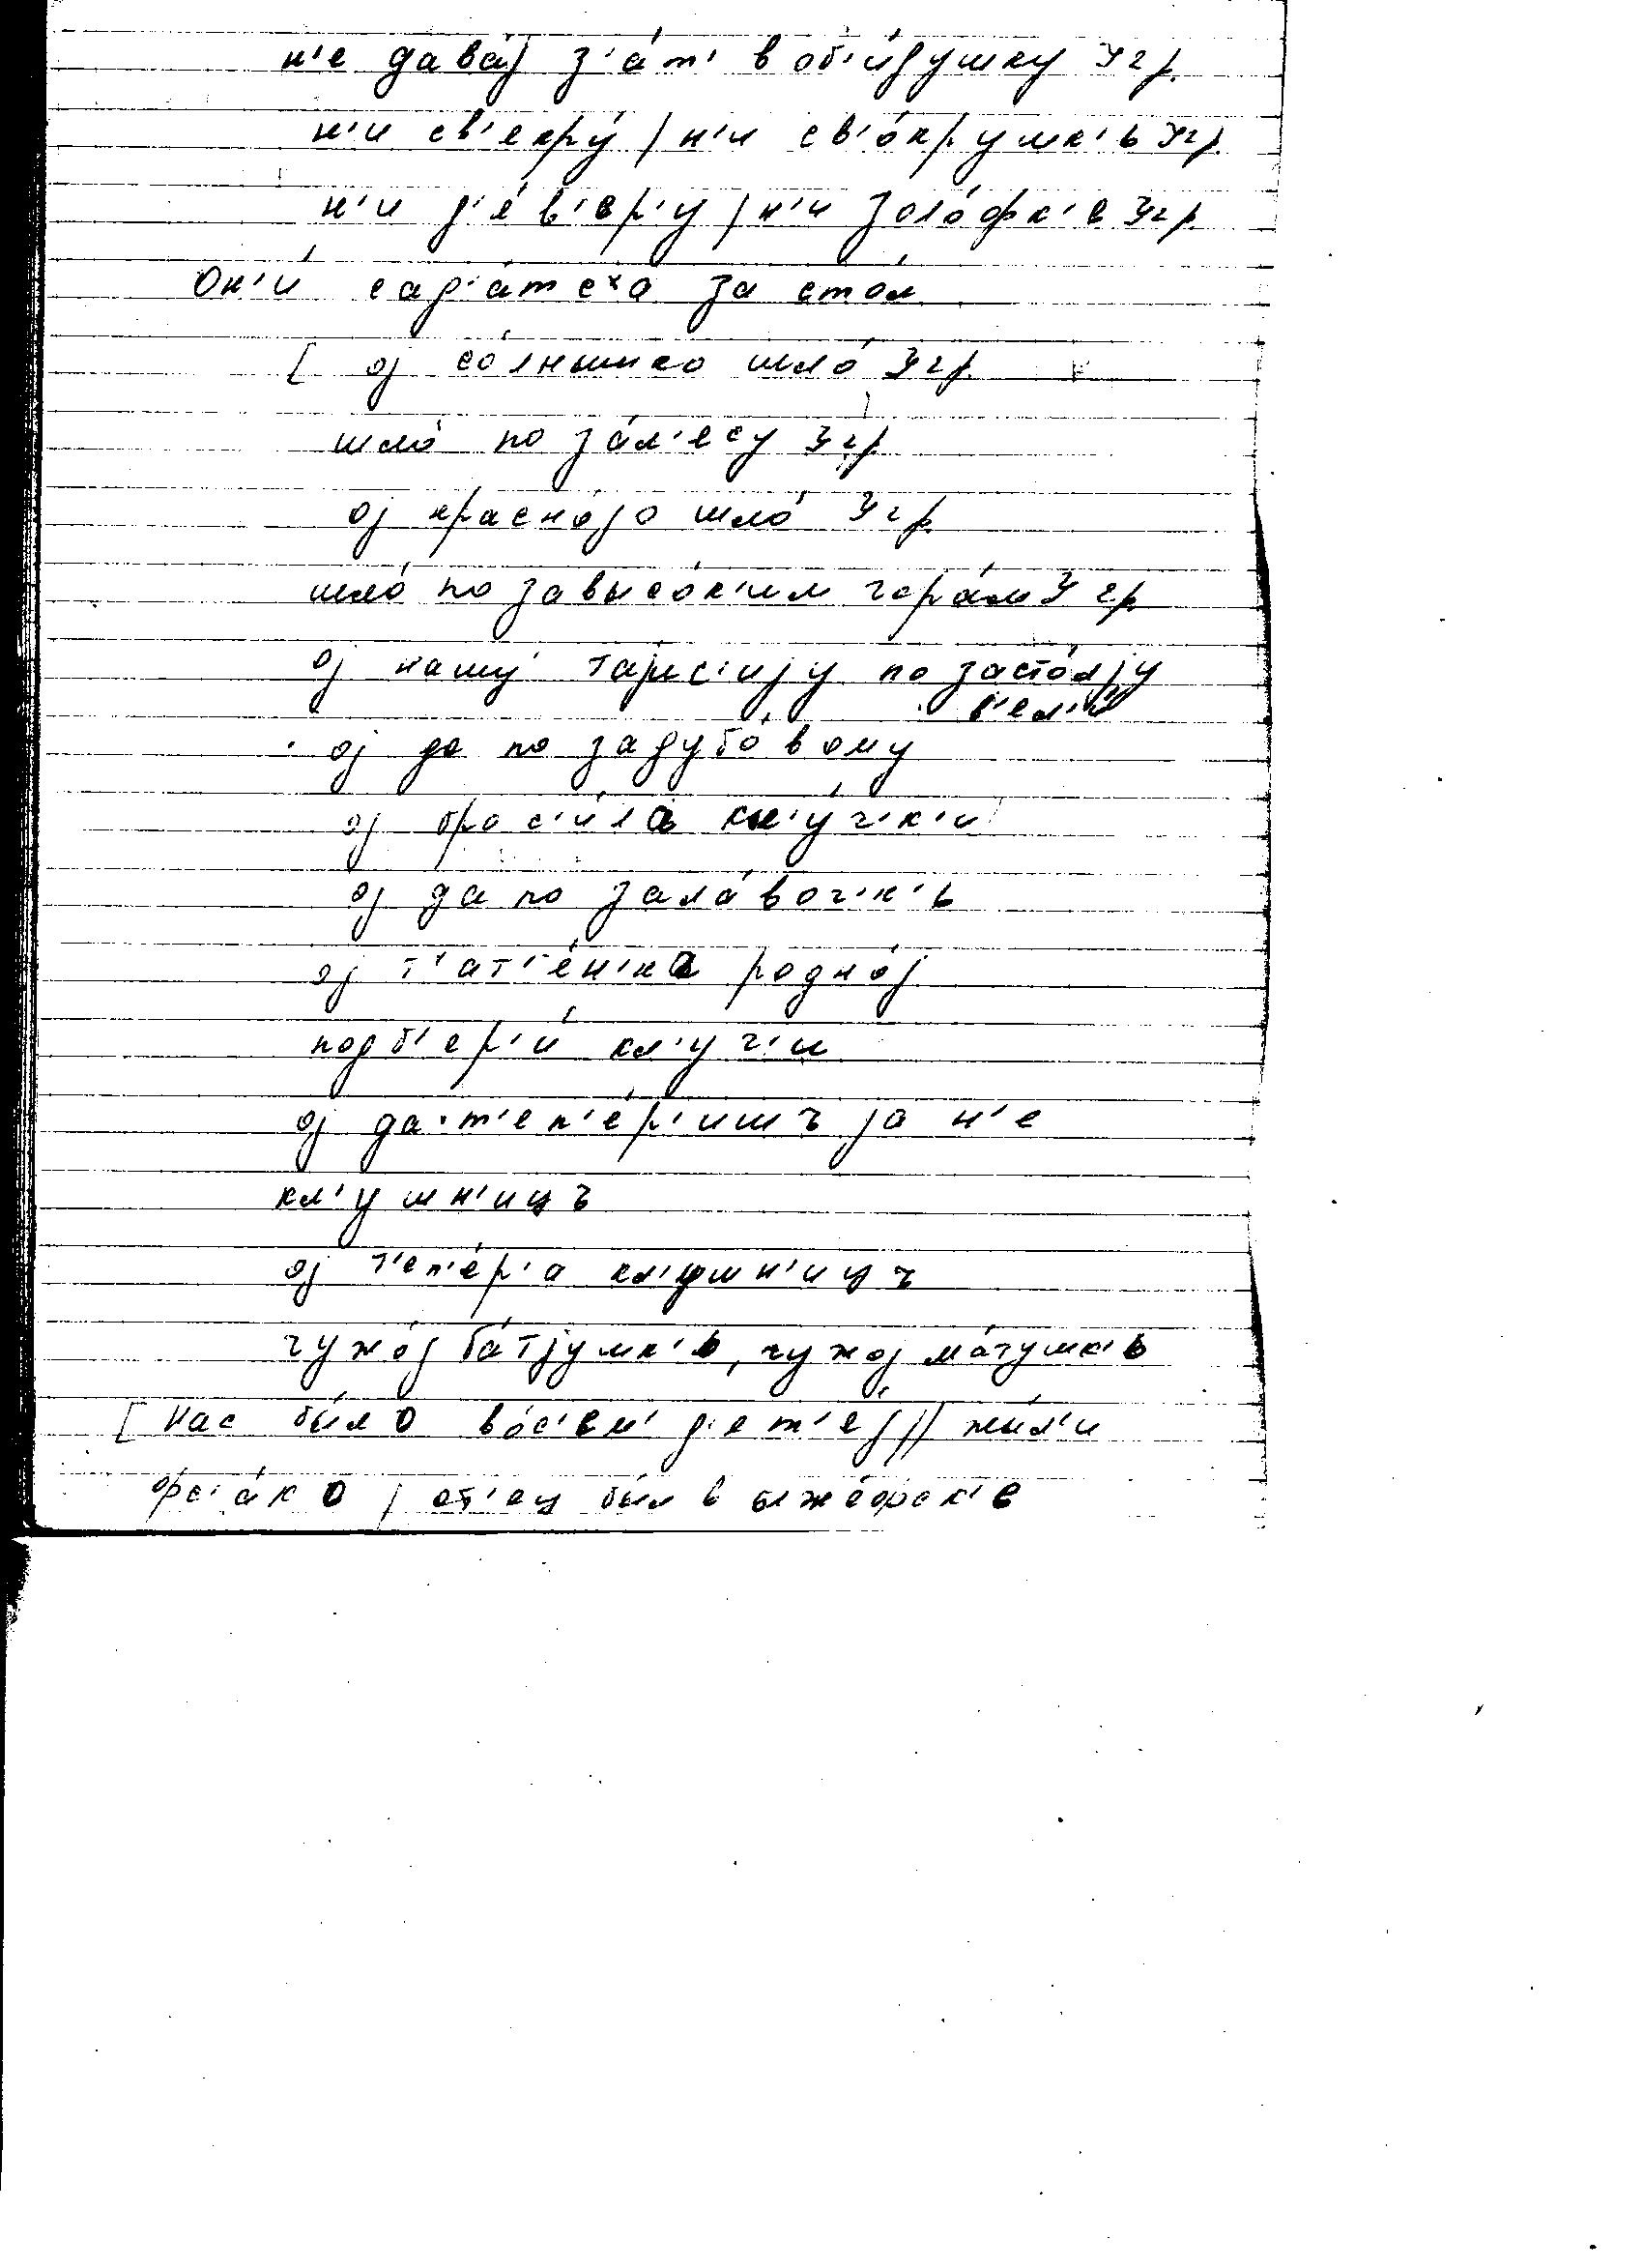 н'е дава́ј з'а́т' в об'и́душку 3 г р.
н'и св'екру́ / н'и св'о́крушк'ь 3 г р.
н'и д'е́в'ер'у / н'и золо́фк'е 3 г р.
Он'и́ сад'а́тсхо за сто́л
[ ој со́лнышко шло́ 3 г р.
шло́ по за́л'есу 3 г р
ој красно́јо шло́ 3 г р.
шло́ по завысо́к'им гора́м 3 г р
ој нашу́ по засто́лју
в'ел'и́
ој да по задубо́вому
ој брос'и́ла кл'у́ч'к'и
ој да по зала́воч'к'ь
ој т'ат'е́н'ка родно́ј
подб'ер'и́ кл'уч'и
ој да т'еп'е́р'ишъ ја н'е
кл'ушн'ицъ
ој т'еп'е́р'а кл'ушн'ицъ
чужо́ј ба́тјушк'ь, чужој ма́тушк'ь
[ нас бы́ло во́с'ем' д'ет'е́ј // жы́л'и
фс'а́ко / от'ец был в ыже́фск'е